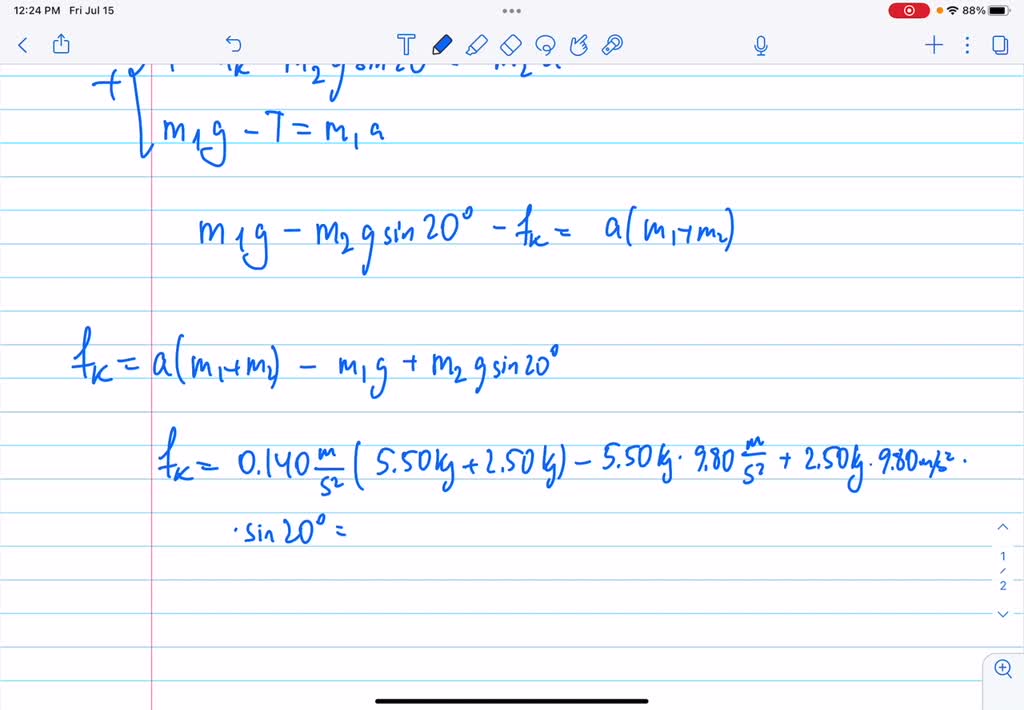 12:24 PM Fri Jul 15
88%
m₁g - T = m₁a
m₁g - m₂g sin 20° - fₖ = a(m₁+m₂)
fₖ = a(m₁+m₂) - m₁g + m₂g sin 20°
fₖ = 0.140 m/s² (5.50kg + 2.50kg) - 5.50kg · 9.80 m/s² + 2.50kg · 9.80 m/s² ·
· sin 20° =
1
/
2